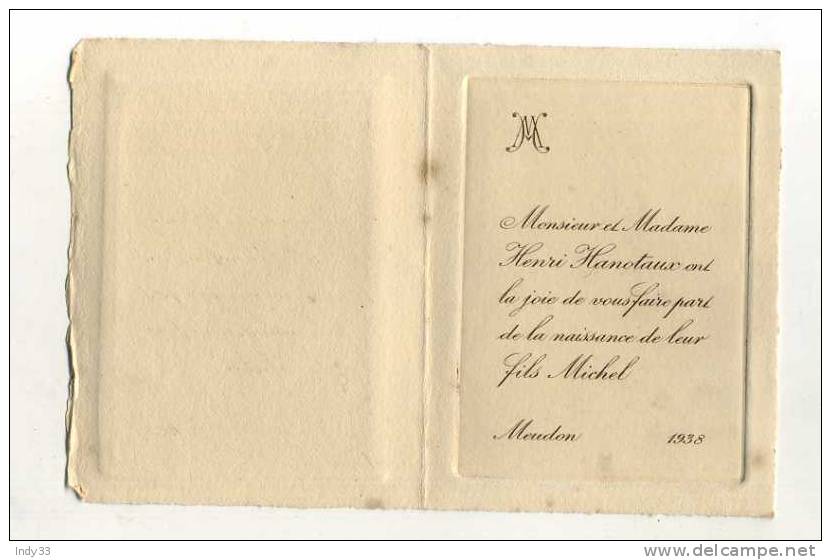 M
Monsieur et Madame
Henri Hanotaux ont
la joie de vous faire part
de la naissance de leur
fils Michel
Meudon 1938
Indy33
www.delcampe.net